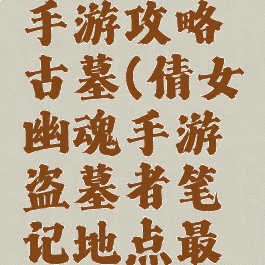 手游攻略
古墓(倩女
幽魂手游
盗墓者笔
记地点最